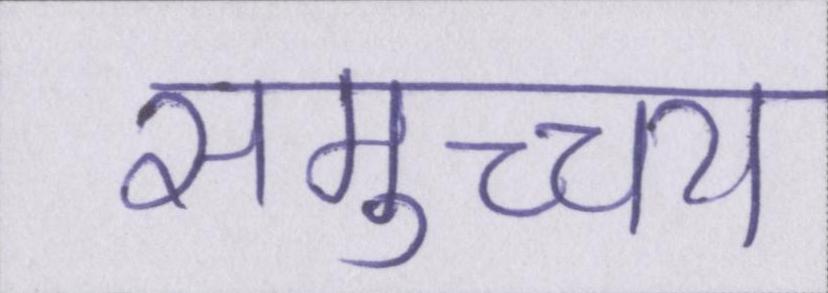 समुच्चय